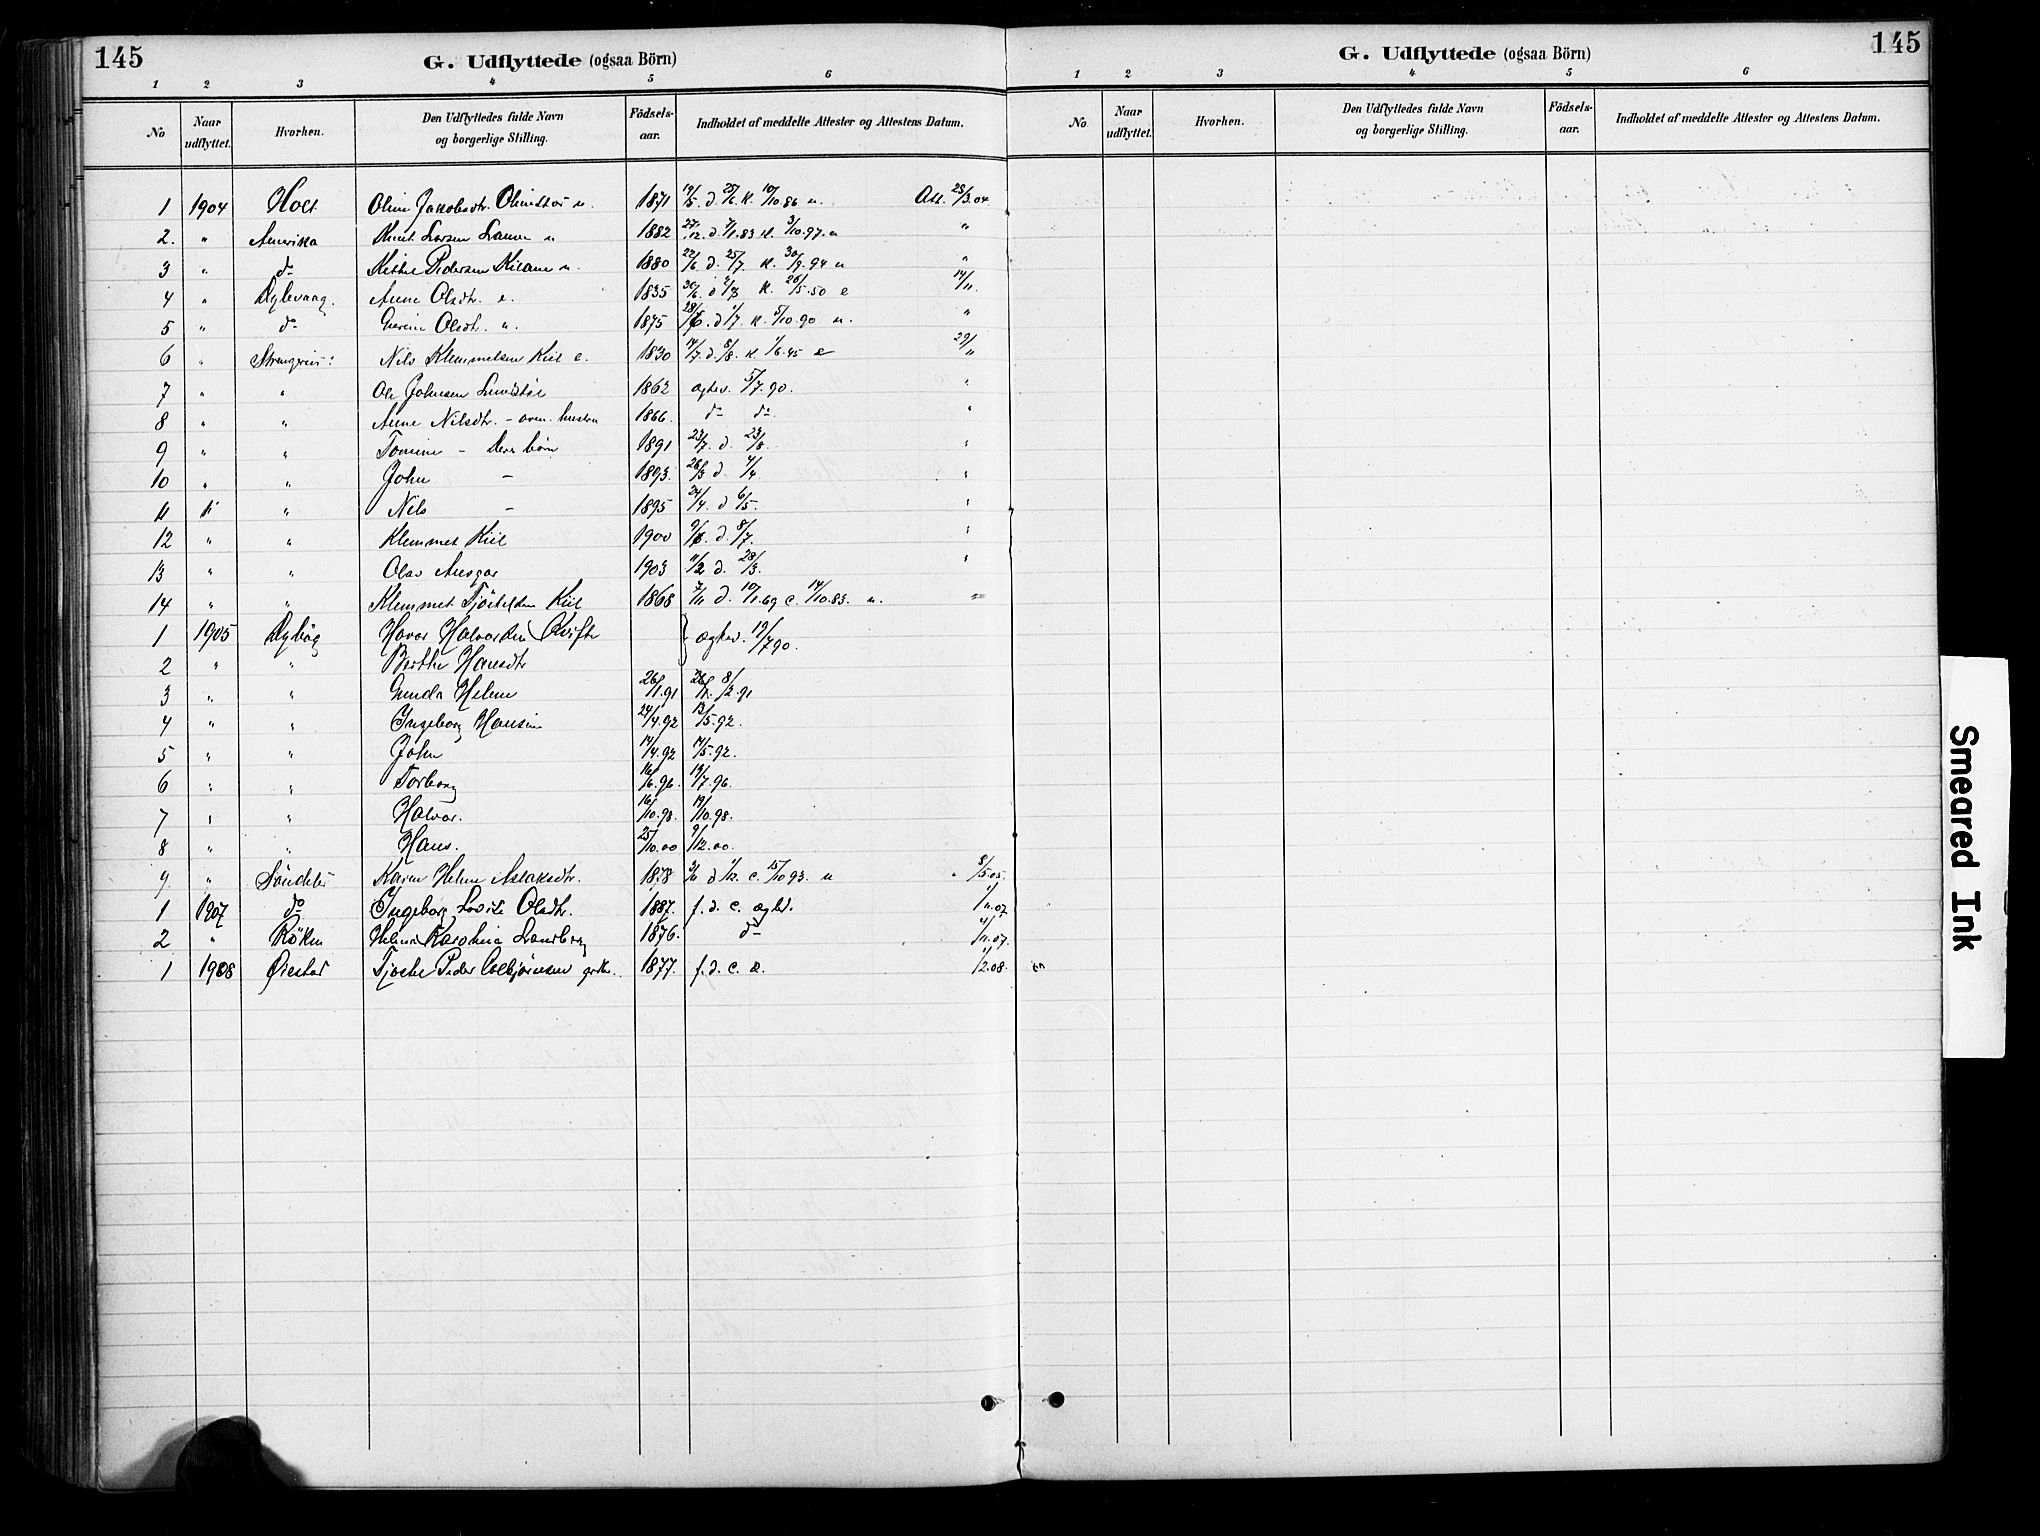 145
G. Udflyttede (ogsaa Börn)
1 2 3 4 5 6
No Naar udflyttet. Hvorhen. Den Udflyttedes fulde Navn og borgerlige Stilling. Födsels-aar. Indholdet af meddelte Attester og Attestens Datum.
1 1904 Holt Oline Jakobsdtr. u. 1871 19/5. d. 25/6. K. 10/10 86 u. Att. 25/3.04.
2. " Amerika Knut Larsen u 1882 27/12. d. 7/1.83 K. 3/10.97. u "
3 " do Pedersen u. 1880 22/6 d. 25/7. K. 30/9.94 u "
4 " Dybvaag. Anne Olsdtr. e. 1835 K. 26/5.50 e 14/11.
5 " do Olsdtr. u. 1875 d 1/7. K. 5/10.90 u. "
6 " Nils Klemmetsen Kiil e. 1830 14/7. d. 8/8. K 1/6.45 e 29/"
7 " " Ole Johnsen 1862 ægtev. 5/7.90. "
8 " " Anne Nilsdtr. - oven. hustru 1866. do do. "
9 " " Tomine - Deres børn 1891 23/7. d. 23/8. "
10 " " John - 1893. 26/3 d. 4/4 "
11 " " Nils - 1895 24/4. d 6/5. "
12 " " Klemmet Kiil 1900 9/6. d. 8/7. "
13 " " Olav Ansgar 1903 11/2 d. 28/3. "
14 " " Klemmet Kiil 1868 7/11 d. 10/1.69 c. 14/10.83. u. "
1 1905 Dybvåg Halvorsen ægtev. 19/7 90.
2 " " Berthe Hansdtr
3 " " Gunda Helene 26/1.91 8/2.91
4 " " Ingeborg Hansine 24/4.92 13/5.92.
5 " " John 14/4.92 14/5.92.
6 " " Torborg 16/6.96. 19/7.96.
7 " " Halvor. 16/10.98. 19/10.98.
8 " " Hans. 25/10.00 9/12.00.
9. " Söndeled Karen Helene Aslaksdtr. 1878 c. 15/10 93. u " 8/5.05.
1 1907 do Ingeborg Lovise Olsdtr. 1887. f. d. c. ægtev. 1/11.07
2 " Röken Karoline 1876. do 4/11.07.
1 1908 Øiestad Peder 1877. f. d. c. 1/2.08.
145
G. Udflyttede (ogsaa Börn)
1 2 3 4 5 6
No. Naar udflyttet. Hvorhen. Den Udflyttedes fulde Navn og borgerlige Stilling. Födsels-aar. Indholdet af meddelte Attester og Attestens Datum.
Smeared Ink